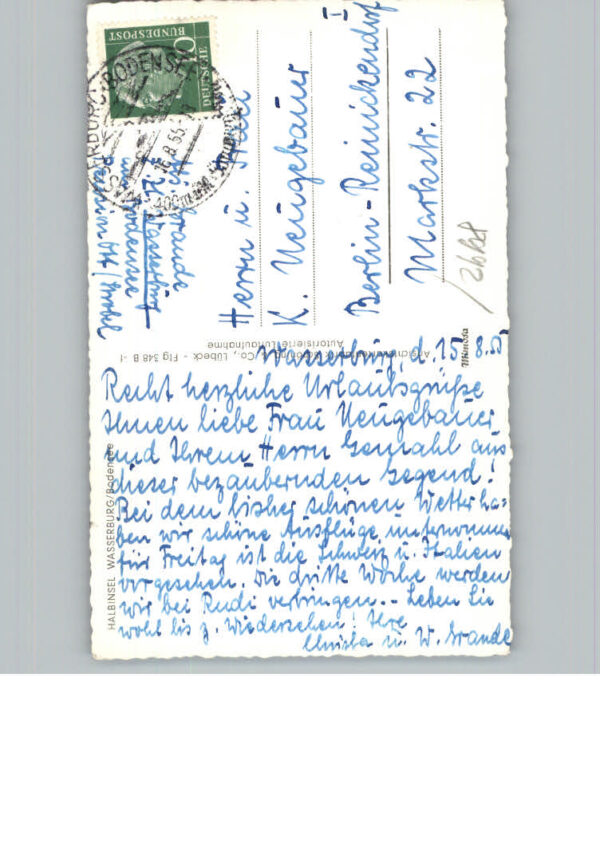 HALBINSEL WASSERBURG/Bodensee
Wasserburg, d. 15.8.55
Recht herzliche Urlaubsgrüße
Ihnen liebe Frau Neugebauer
und Ihrem Herrn Gemahl aus
dieser bezaubernden Gegend!
Bei dem bisher schönen Wetter ha=
ben wir schöne Ausflüge unternommen
für Freitag ist die Schweiz u. Italien
vorgesehen. Die dritte Woche werden
wir bei Rudi verbringen. - Leben Sie
wohl bis z. Wiedersehen! Ihre
Christa u. W. Grande
Ansichtskartenfabrik Schöning & Co., Lübeck - Flg 348 B -1
Autorisierte Luftaufnahme
Mimosa
DEUTSCHE
BUNDESPOST
BODENSEE
Wasserburg
Bodensee
Pension
Herrn u. Frau
K. Neugebauer
I
Berlin-Reinickendorf
Markstr. 22